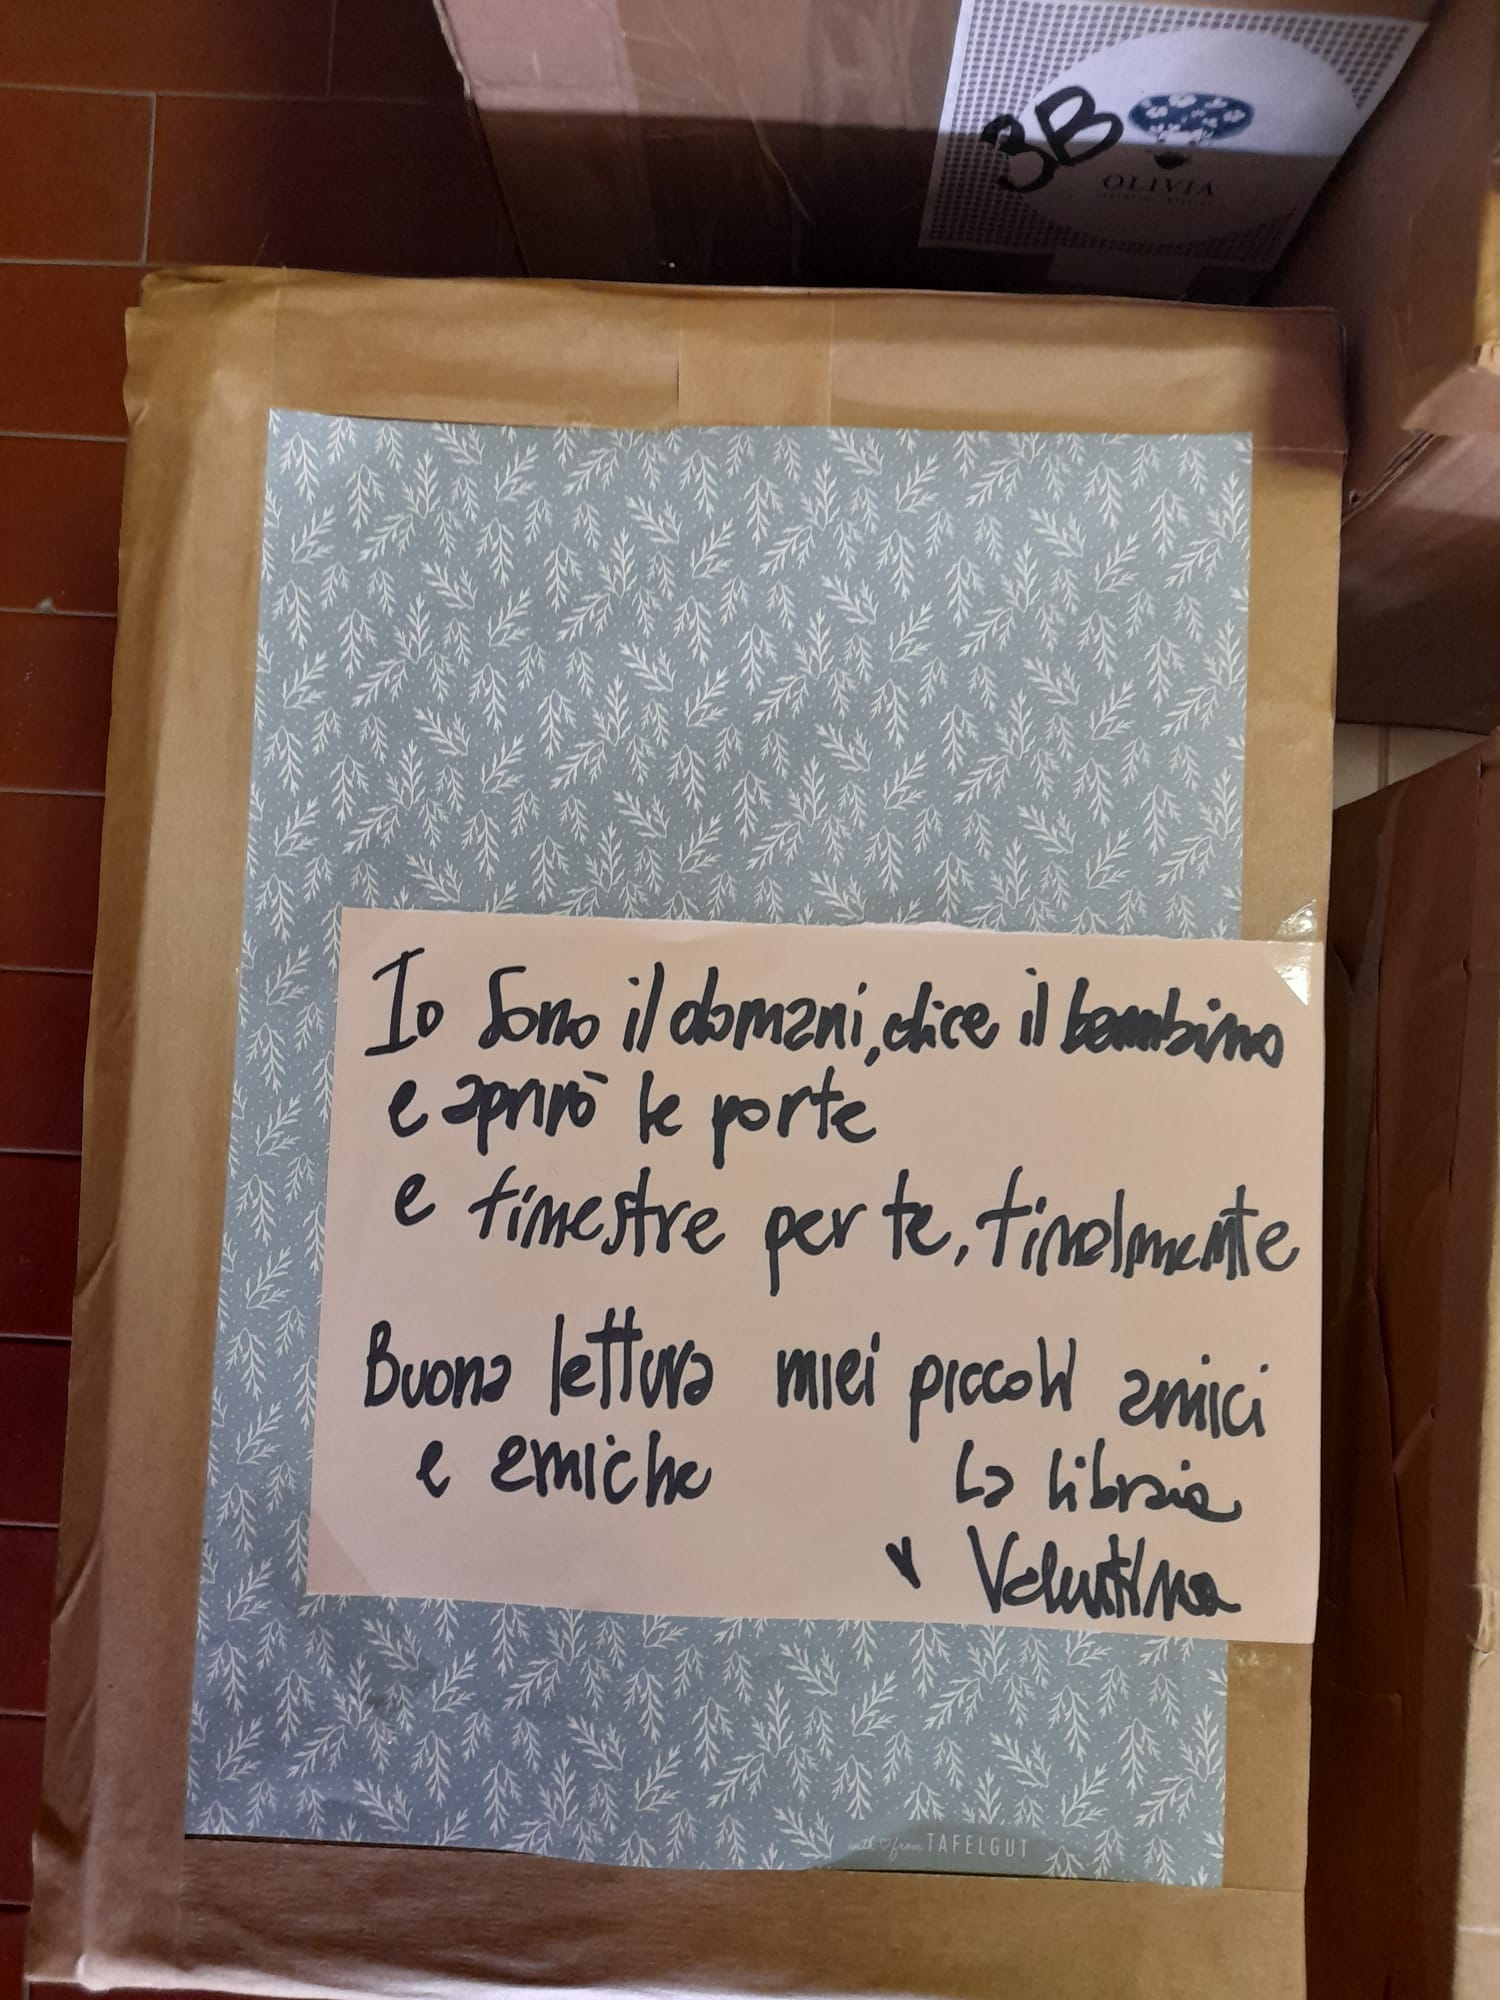 3B
OLIVIA
Io sono il domani, dice il bambino
e aprirò le porte
e finestre per te, finalmente
Buona lettura miei piccoli amici
e amiche
La libraia
Valentina
with ♡ from TAFELGUT